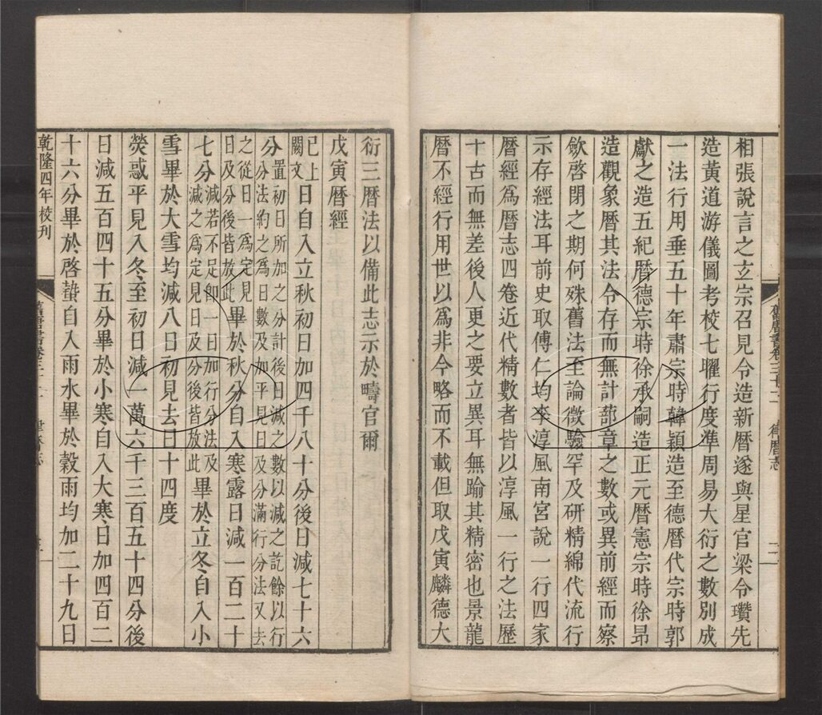 相張說言之玄宗召見令造新曆遂與星官梁令瓚先
造黃道游儀圖考校七曜行度準周易大衍之數別成
一法行用垂五十年肅宗時韓穎造至德曆代宗時郭
獻之造五紀曆德宗時徐承嗣造正元曆憲宗時徐昂
造觀象曆其法令存而無計蔀章之數或異前經而察
斂啓閉之期何殊舊法至論徵驗罕及研精綿代流行
示存經法耳前史取傅仁均李淳風南宮說一行四家
曆經爲曆志四卷近代精數者皆以淳風一行之法歷
十古而無差後人更之要立異耳無踰其精密也景龍
曆不經行用世以爲非今略而不載但取戊寅麟德大
衍三曆法以備此志示於疇官爾
戊寅曆經
已上
闕文
日自入立秋初日加四千八十分後日減七十六
分
置初日所加之分計後日減之數以減之訖餘以行
分法約之爲日數及加平見日及分滿行分法又去
之從日一爲定見
日及分後皆放此
畢於秋分自入寒露日減一百二十
七分
減若不足卽一日加行分法及
減之爲定見日及分後皆放此
畢於立冬自入小
雪畢於大雪均減八日初見去日十四度
熒惑平見入冬至初日減一萬六千三百五十四分後
日減五百四十五分畢於小寒自入大寒日加四百二
十六分畢於啓蟄自入雨水畢於穀雨均加二十九日
乾隆四年校刊